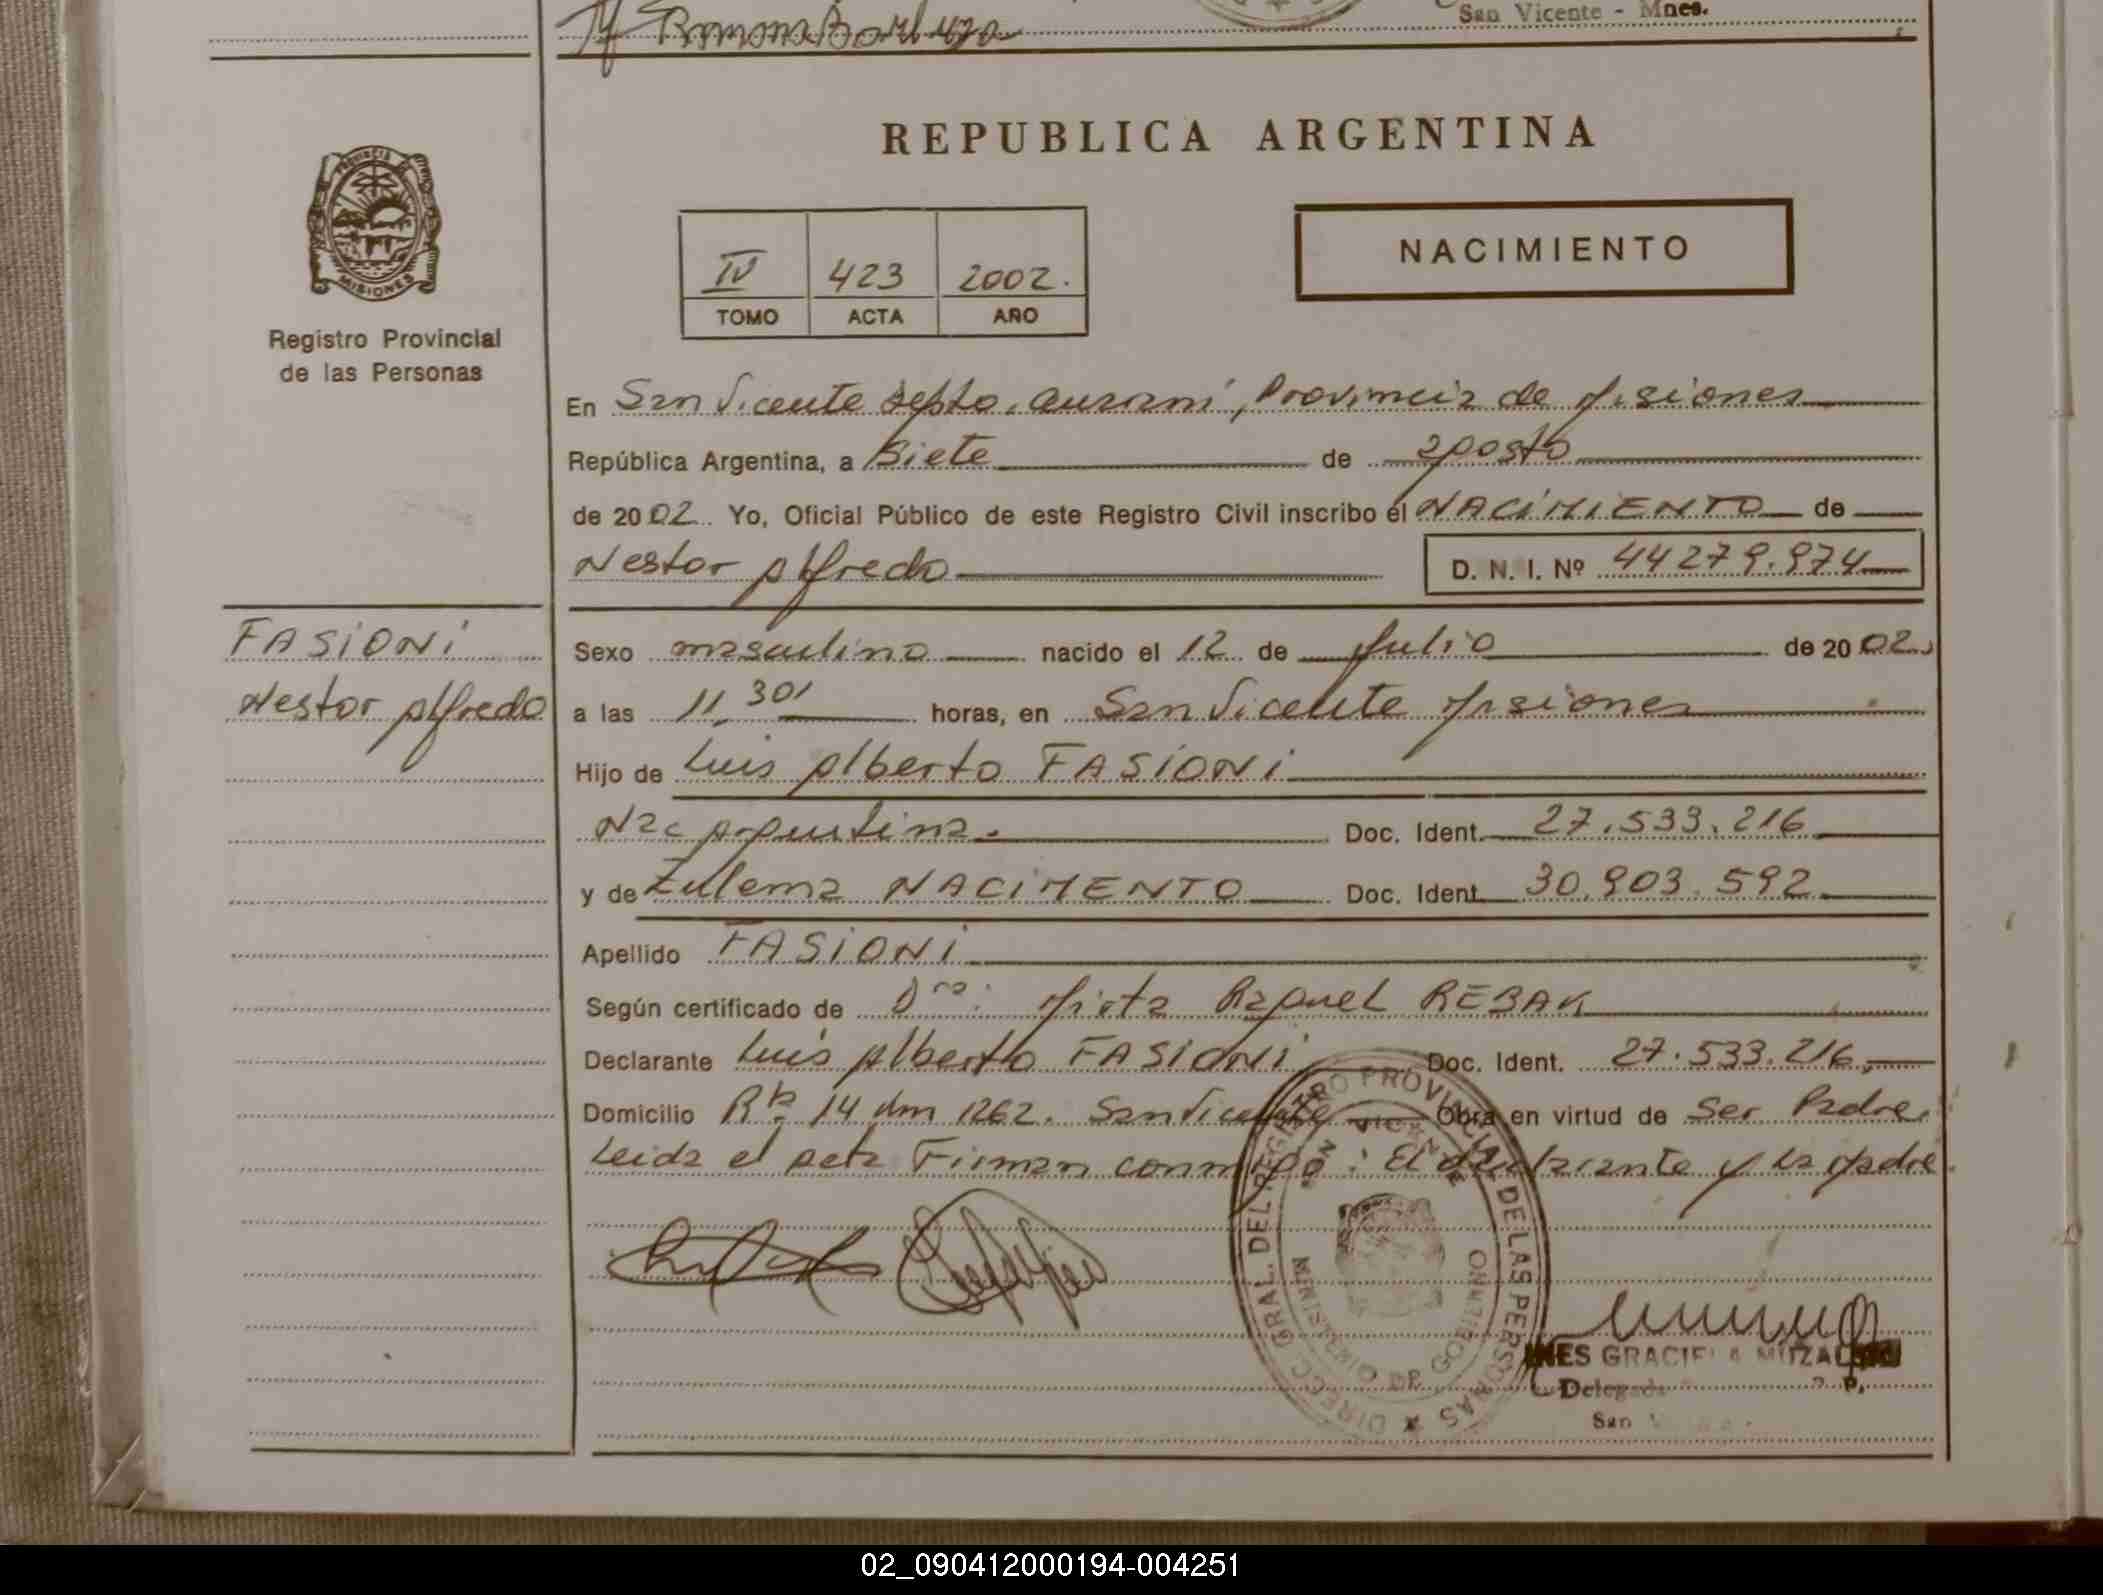 Ramona Barboza
San Vicente - Mnes.
PROVINCIA DE
MISIONES
Registro Provincial
de las Personas
REPUBLICA ARGENTINA
IV 423 2002.
TOMO ACTA AÑO
NACIMIENTO
En San Vicente Depto. Guaraní, Provincia de Misiones
República Argentina, a Siete de agosto
de 2002. Yo, Oficial Público de este Registro Civil inscribo el NACIMIENTO de
Nestor Alfredo D. N. I. Nº 44279.974
FASIONI
Nestor Alfredo
Sexo masculino nacido el 12 de Julio de 2002.
a las 11,30' horas, en San Vicente Misiones
Hijo de Luis Alberto FASIONI
Nac Argentina. Doc. Ident. 27.533.216
y de Zulema NACIMENTO Doc. Ident. 30.903.592
Apellido FASIONI
Según certificado de Dra: Mirta Raquel REBAK
Declarante Luis Alberto FASIONI Doc. Ident. 27.533.216,
Domicilio Rta 14 Km 1262. San Vicente Obra en virtud de Ser Padre.
Leida el acta Firman conmigo: El declarante y la Madre.
DIREC. GRAL. DEL REGISTRO PROVINCIAL DE LAS PERSONAS
SAN VICENTE
MINISTERIO DE GOBIERNO
INES GRACIELA
Delegada
San
02_090412000194-004251